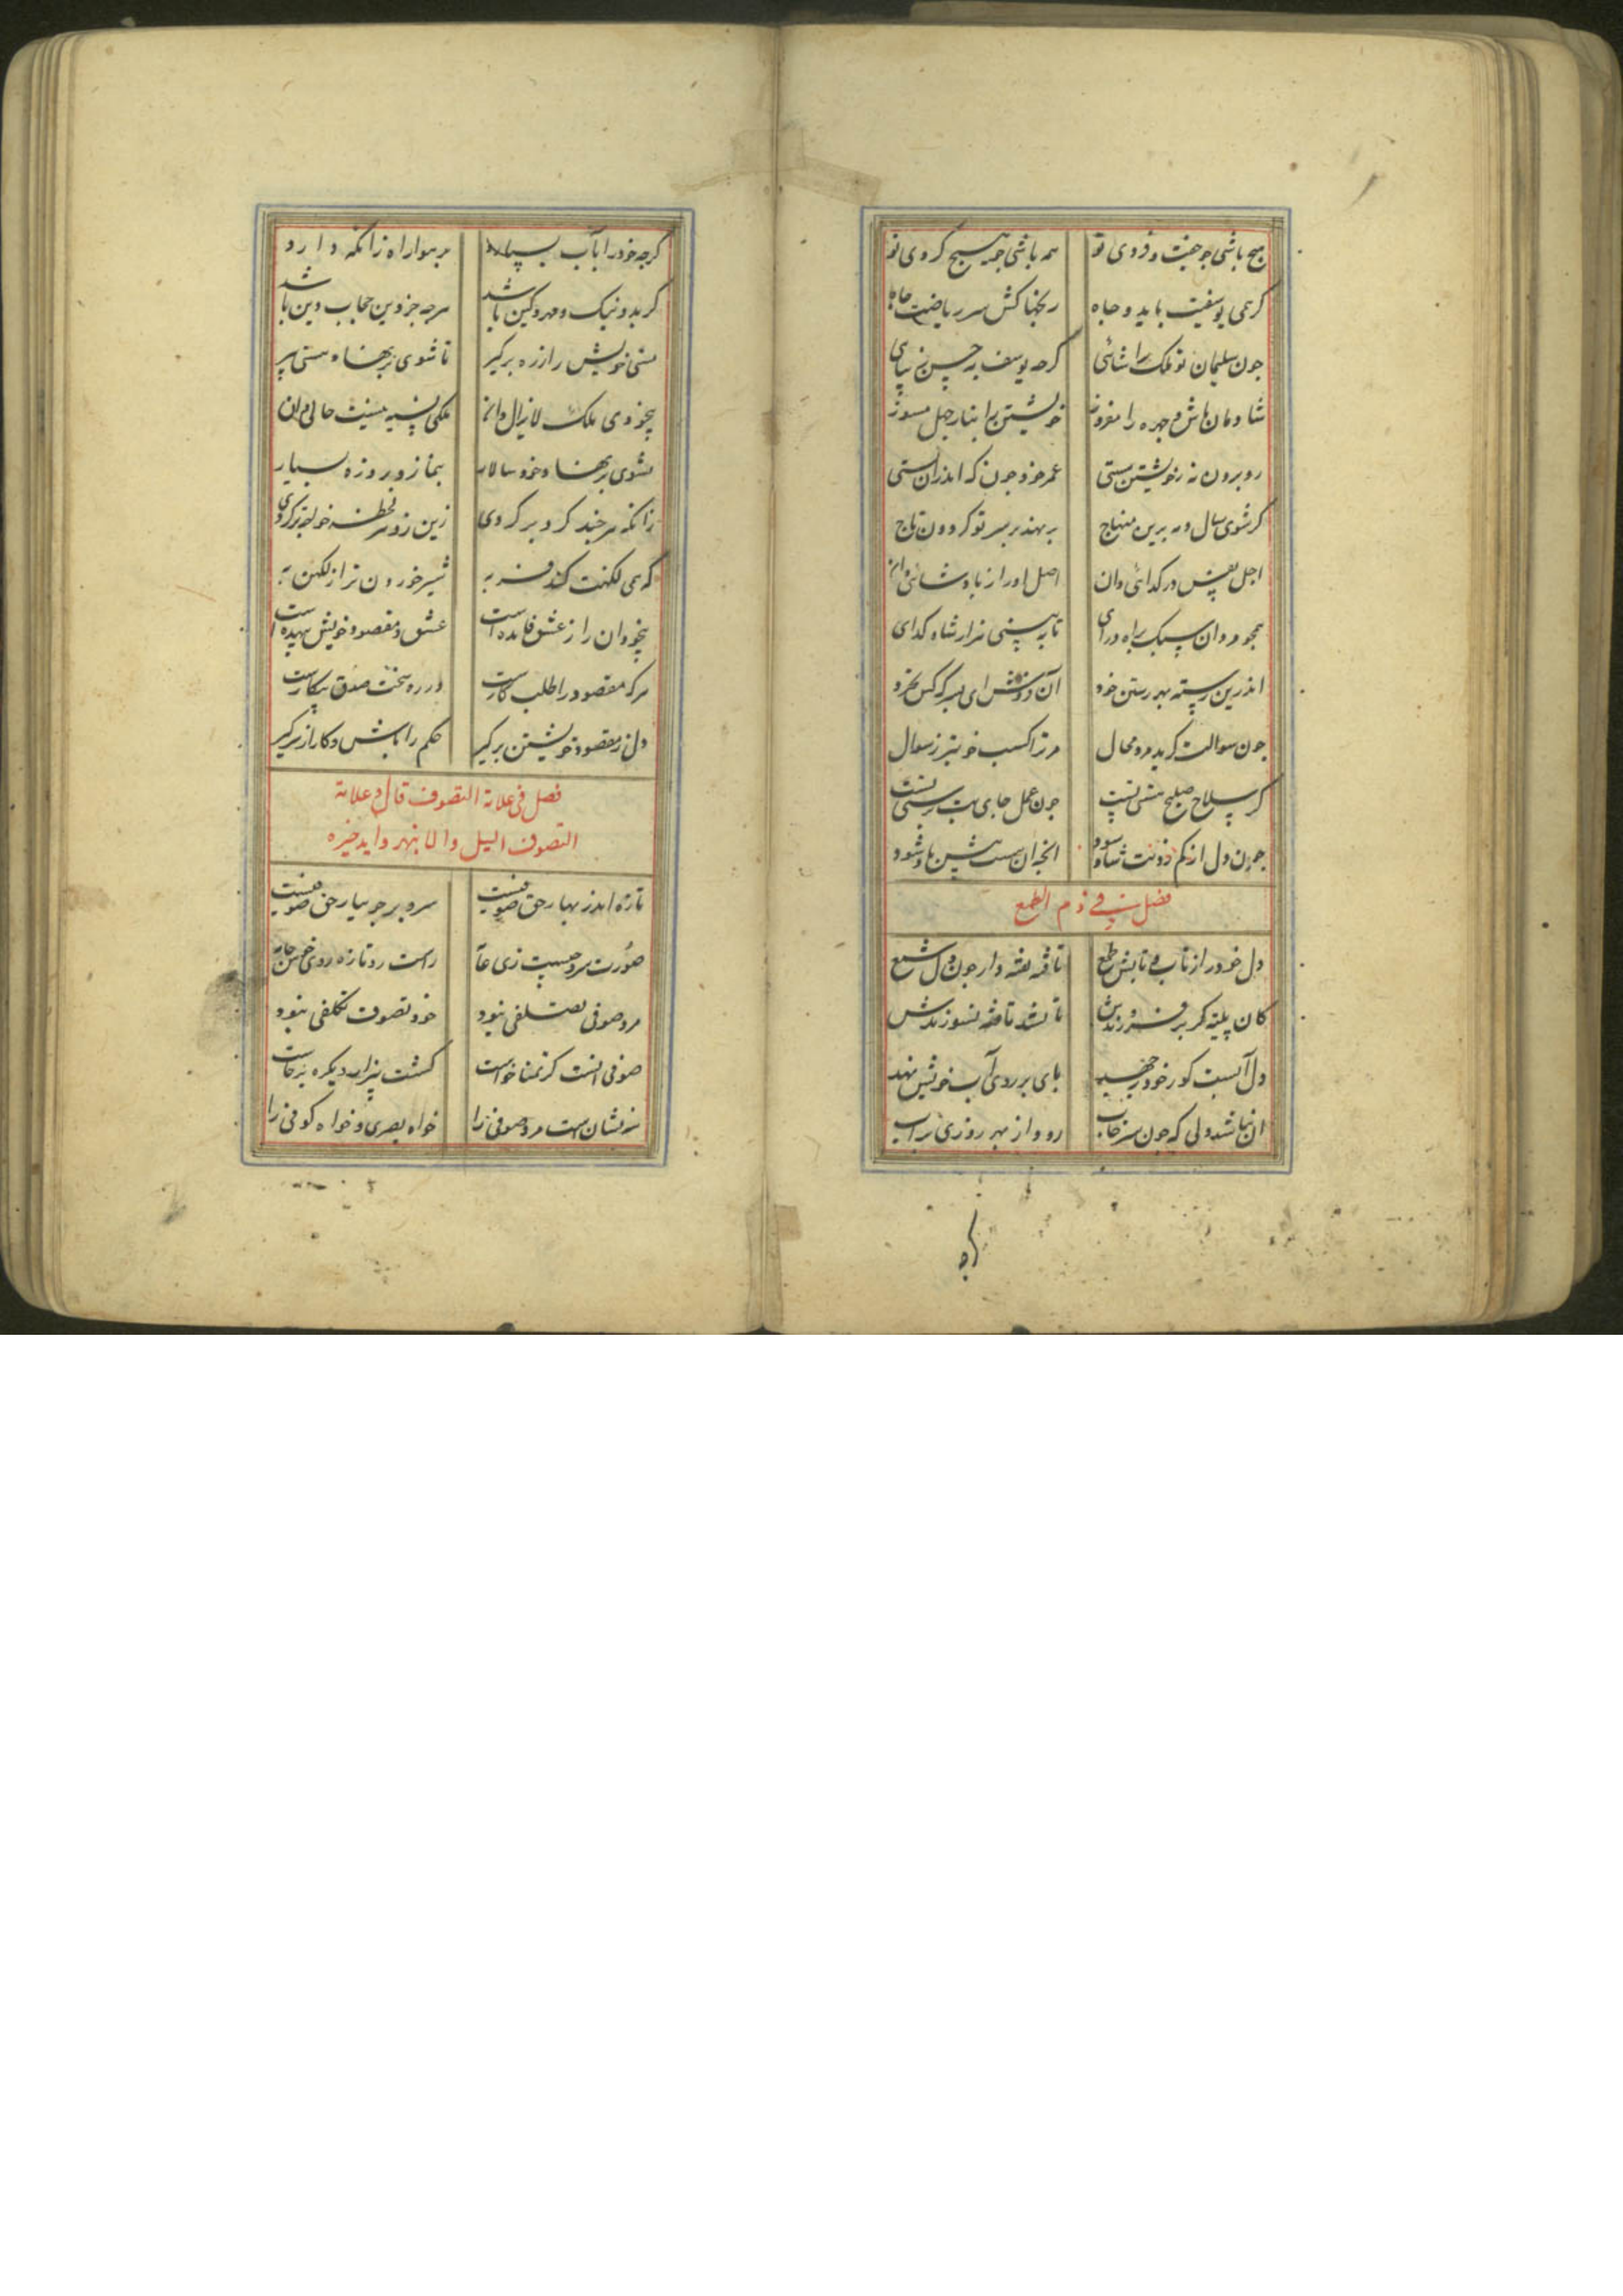 هیچ باشی چو جفت و فردی تو همه باشی چو هیچ کردی تو
کرهمی یوسفیت باید و جاه رنجها کش سر ریاضت چاه
جون سلیمان تو ملک را شائی کرچه یوسف به حسن زیبای
شادمان باش و چهره را مفروز خویشتن را بنار جهل مسوز
رو برون نه ز خویشتن رستی عمر خود جون که اندران بستی
کر شوی سال و مه برین منهاج برنهد بر سر تو کردون تاج
اجل نفس در کدائی دان اصل او را ز پادشائی دان
همجو مردان سبک براه درای تا به بینی هزار شاه کدای
اندرین رسته بهر رستن خود آن فروش ای پسر که کس نخرد
جون سوالت کرید مرد محال مر ترا کسب خوبتر ز سوال
کر سلاح صلیح منشی نیست جون عمل جای هست رستی نیست
جون دل از کم زدنت شاد شود انجه ان هست پیش باد شود
فصل فی ذم الطمع
دل خود را ز تاب و تابش طمع تافته تفته دار جون دل شمع
کان پلیته کر برفروزندش تا نشد تافته نسوزندش
دل آنست کو ز خود بجهد پای بر روی آب خویش نهد
ان نباشد دلی که جون سرخاب رود از بهر روزی براب
کرچه
کرجه خود را بآب بسپارد بر هوا راه زانکه دارد
کر بد و نیک و مهر و کین باشد هرجه جز دین حجاب دین باشد
هستی خویش را ز ره برکیر تا شوی بر نهاد هستی میر
بیخودی ملک لایزال دان ملکی نسیه نیست حالی دان
نشوی بر نهاد خود سالار بنماز و بروزه بسیار
زانکه هر جند کرد بر کردی زین دو هر لحظه خواجه تر کردی
که همی لکهنت کند فربه سیر خوردن ترا ز لکهن به
بیخودان را ز عشق فایده است عشق و مقصود خویش بیهده است
هر که مقصود را طلب کارست در ره سخت صدق بیکارست
دل ز مقصود خویشتن برکیر حکم را باش و کار از سر کیر
فصل فی علامة التصوف قال و علامة
التصوف الیل و النهار و اید خیره
تازه اندر بهار حق صوفیست سرو بر جویبار حق صوفیست
صورت سرو چیست زی عامه راست رو تازه روی خوش جامه
مرد صوفی تصلفی نبود خود تصوف تکلفی نبود
صوفی انست کز تمنا خواست کشت بیزار دیکره برخاست
سه نشان است مرد صوفی را خواه بصری و خواه کوفی را